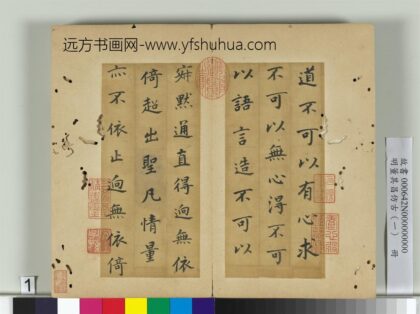 远方书画网-www.yfshuhua.com
道不可以有心求
不可以無心得不可
以語言造不可以
寂默通直得迥無依
倚超出聖凡情量
亦不依止迥無依倚
故書 000642N000000000
明董其昌仿古(一) 冊
1